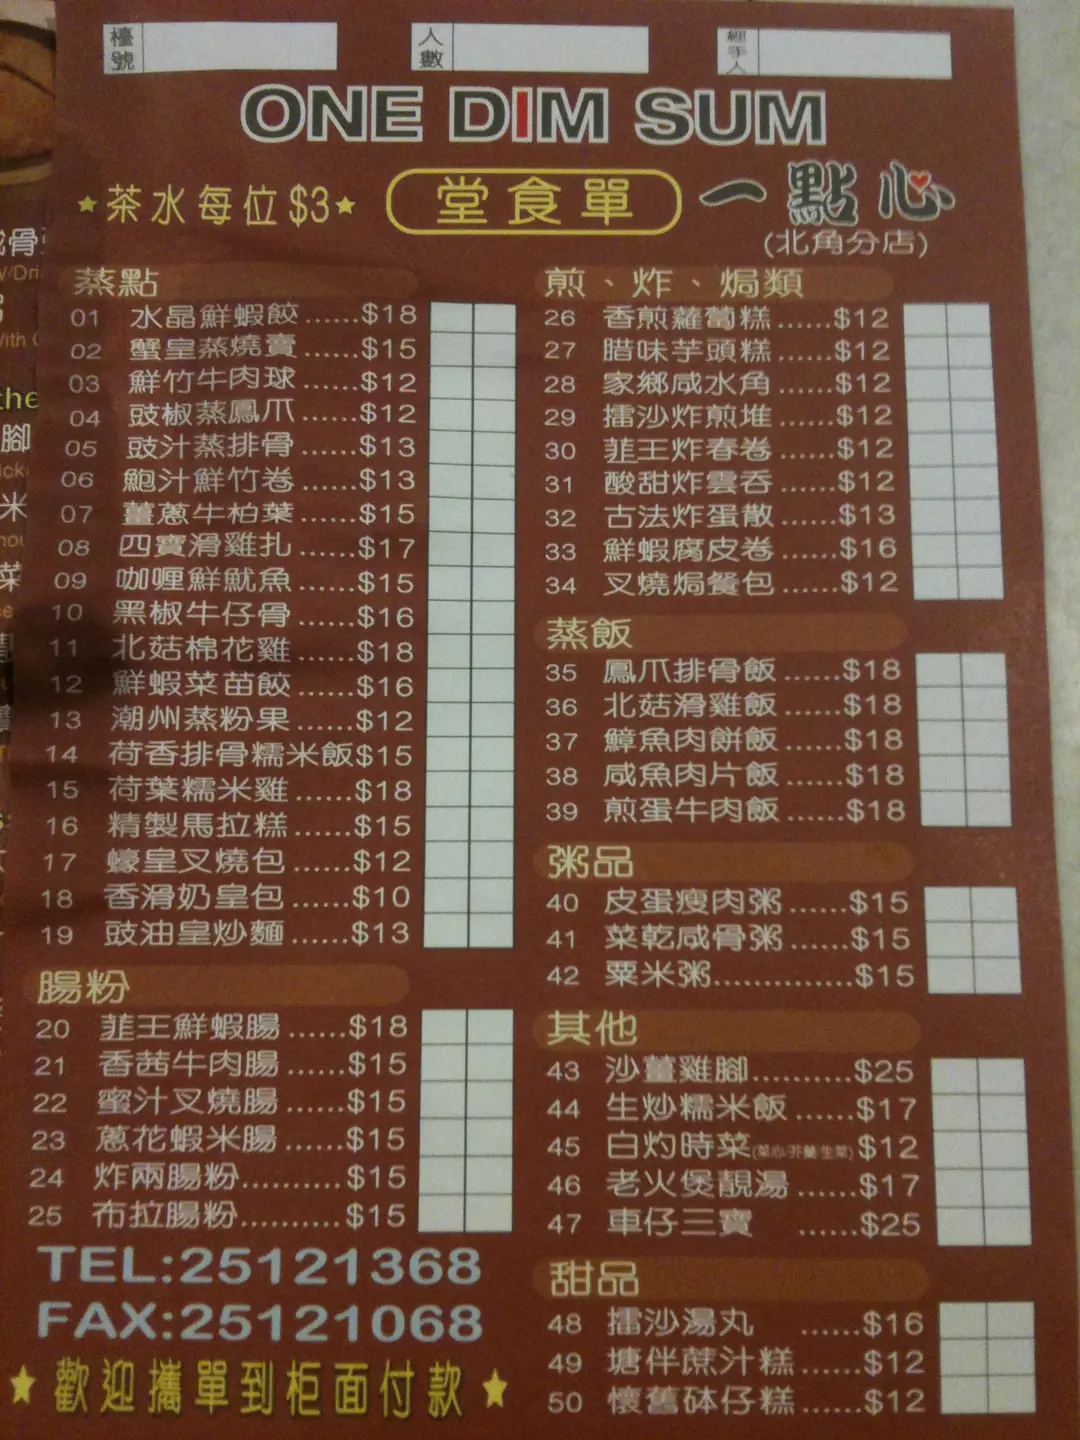 檯號 人數 經手人
ONE DIM SUM
★茶水每位$3★ 堂食單 一點心
(北角分店)
蒸點
01 水晶鮮蝦餃......$18
02 蟹皇蒸燒賣......$15
03 鮮竹牛肉球......$12
04 豉椒蒸鳳爪......$12
05 豉汁蒸排骨......$13
06 鮑汁鮮竹卷......$13
07 薑蔥牛柏葉......$15
08 四寶滑雞扎......$17
09 咖喱鮮魷魚......$15
10 黑椒牛仔骨......$16
11 北菇棉花雞......$18
12 鮮蝦菜苗餃......$16
13 潮州蒸粉果......$12
14 荷香排骨糯米飯$15
15 荷葉糯米雞......$18
16 精製馬拉糕......$15
17 蠔皇叉燒包......$12
18 香滑奶皇包......$10
19 豉油皇炒麵......$13
腸粉
20 韮王鮮蝦腸......$18
21 香茜牛肉腸......$15
22 蜜汁叉燒腸......$15
23 蔥花蝦米腸......$15
24 炸兩腸粉..........$15
25 布拉腸粉..........$15
TEL:25121368
FAX:25121068
★歡迎攜單到柜面付款★
煎、炸、焗類
26 香煎蘿蔔糕......$12
27 腊味芋頭糕......$12
28 家鄉咸水角......$12
29 擂沙炸煎堆......$12
30 韮王炸春卷......$12
31 酸甜炸雲吞......$12
32 古法炸蛋散......$13
33 鮮蝦腐皮卷......$16
34 叉燒焗餐包......$12
蒸飯
35 鳳爪排骨飯......$18
36 北菇滑雞飯......$18
37 鱆魚肉餅飯......$18
38 咸魚肉片飯......$18
39 煎蛋牛肉飯......$18
粥品
40 皮蛋瘦肉粥......$15
41 菜乾咸骨粥......$15
42 粟米粥..............$15
其他
43 沙薑雞腳..........$25
44 生炒糯米飯......$17
45 白灼時菜(菜心/芥蘭/生菜)$12
46 老火煲靚湯......$17
47 車仔三寶 ......$25
甜品
48 擂沙湯丸 ......$16
49 塘伴蔗汁糕......$12
50 懷舊砵仔糕......$12